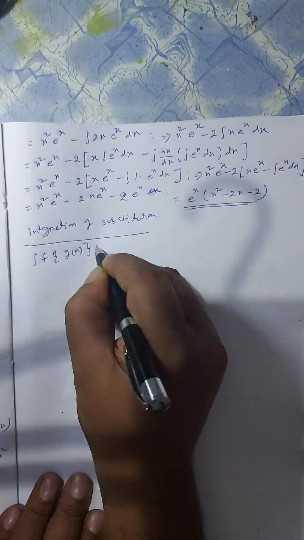 = x²eˣ - ∫2x eˣ dx ; ⇒ x²eˣ - 2∫x eˣ dx
= x²eˣ - 2[x∫eˣdx - ∫{dx/dx ∫eˣ dx} dx]
= x²eˣ - 2[x eˣ - ∫1·eˣ dx] ; ⇒ x²eˣ - 2[x eˣ - ∫eˣ dx]
= x²eˣ - 2xeˣ - 2eˣ = eˣ(x² - 2x - 2)
Integration of
∫f{g(x)}